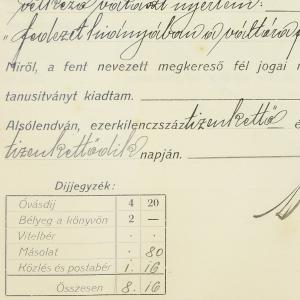 választ nyertem:
„fedezet hiányában a váltóra
Miről, a fent nevezett megkereső fél jogai
tanusítványt kiadtam.
Alsólendván, ezerkilencszáztizenkettő
tizenkettődik napján.
Díjjegyzék:
Óvásdíj 4 20
Bélyeg a könyvön 2 —
Vitelbér . .
Másolat . 80
Közlés és postabér 1. 16
Összesen 8. 16